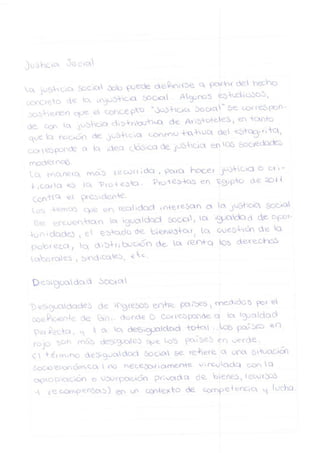 Justicia Social
La justicia social solo puede definirse a partir del hecho
concreto de la injusticia social. Algunos estudiosos,
sostienen que el concepto "Justicia Social" se correspon-
de con la justicia distributiva de Aristoteles, en tanto
que la noción de justicia conmutativa del estagirita,
corresponde a la idea clásica de justicia en las sociedades
modernas.
La manera más recurrida, para hacer justicia o cri-
ticarla es la Protesta. Protestas en Egipto de 2011
contra el presidente.
Los temas que en realidad interesan a la justicia social
se encuentran la igualdad social, la igualdad de opor-
tunidades, el estado de bienestar, la cuestión de la
pobreza, la distribución de la renta los derechos
laborales, sindicales, etc.
Desigualdad social
Desigualdades de ingresos entre países, medidos por el
coeficiente de Gini, donde 0 corresponde a la igualdad
Perfecta, y 1 a la desigualdad total. Los países en
rojo son más desiguales que los países en verde.
El término desigualdad social se refiere a una situación
socioeconómica (no necesariamente vinculada con la
apropiación o usurpación privada de bienes, recursos
y recompensas) en un contexto de competencia y lucha